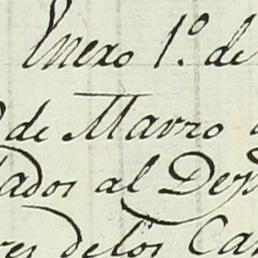 Enero 1.º de
de Marzo
tados al Dep
res de los Ca